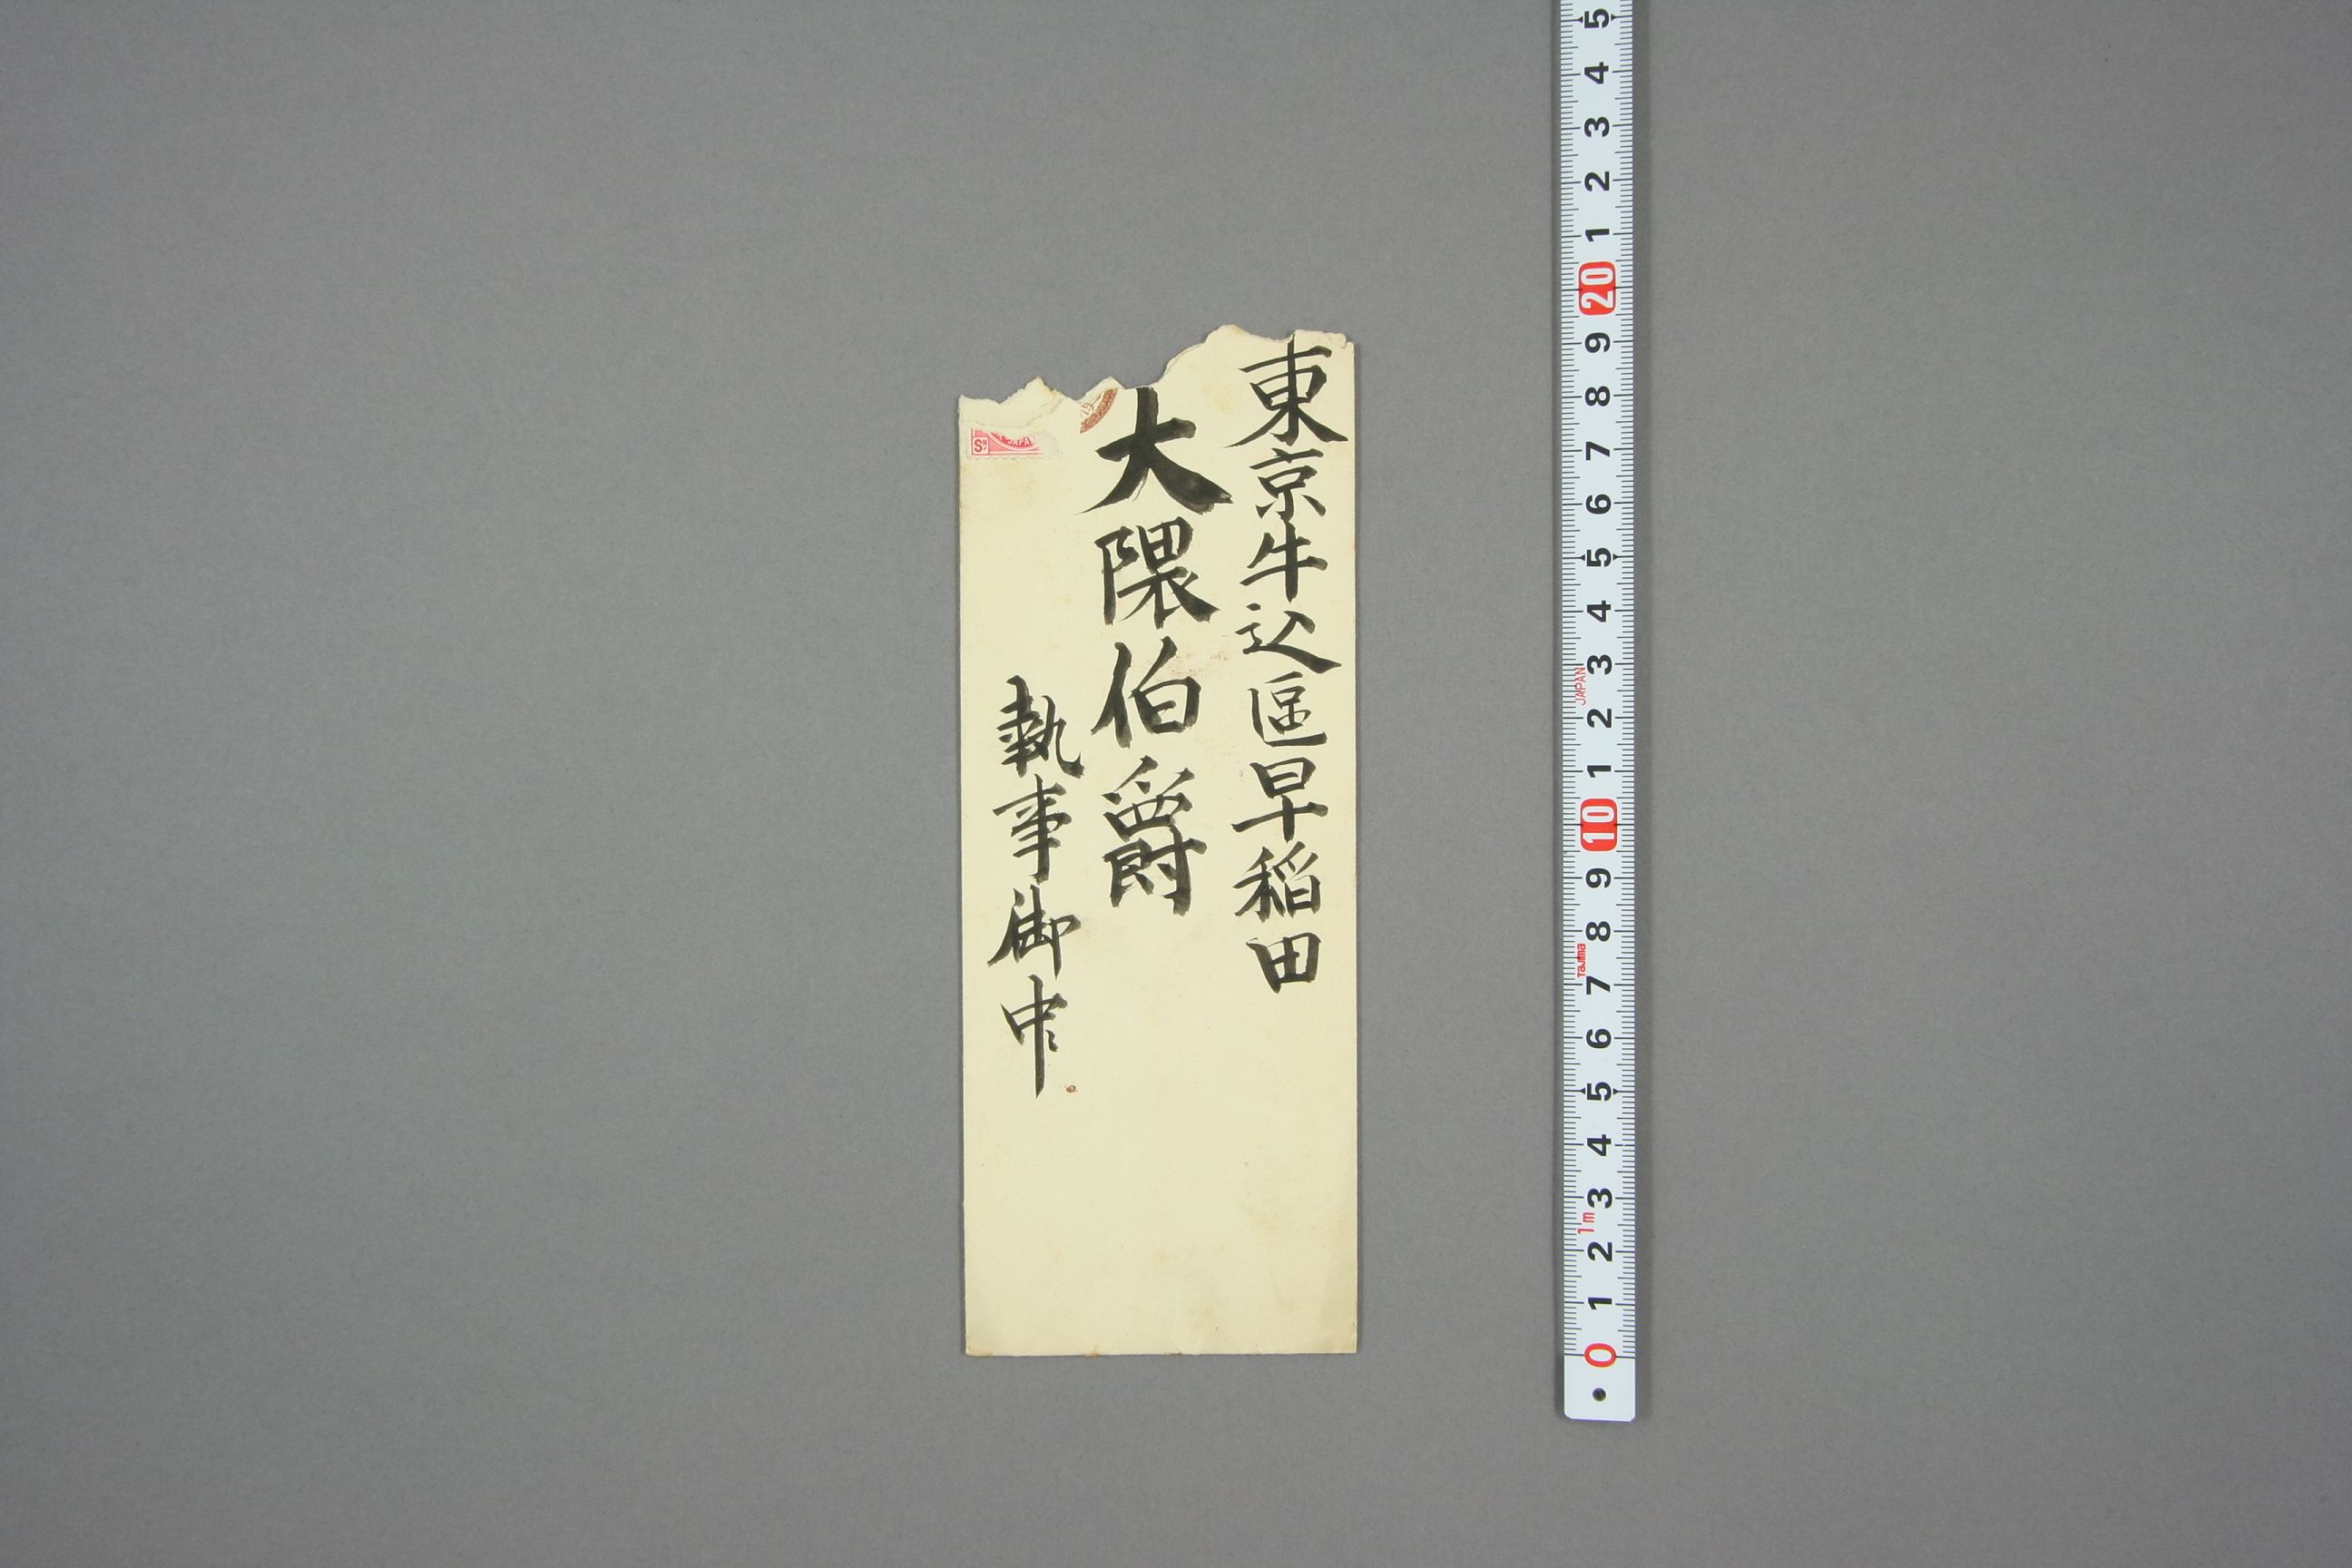 東京牛込區早稲田
大隈伯爵
執事御中
Sn
JAPA
19
5
4
3
2
1
20
9
8
7
6
5
4
3
JAPAN
2
1
10
9
8
Tajima
7
6
5
4
3
1m
2
1
0